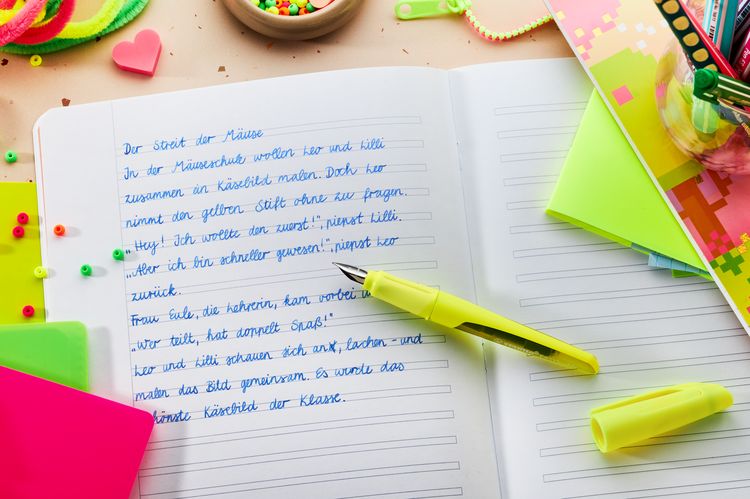 Der Streit der Mäuse
In der Mäuseschule wollen Leo und Lilli
zusammen ein Käsebild malen. Doch Leo
nimmt den gelben Stift ohne zu fragen.
„Hey! Ich wollte den zuerst!", piepst Lilli.
„Aber ich bin schneller gewesen!", piepst Leo
zurück.
Frau Eule, die Lehrerin, kam vorbei
„Wer teilt, hat doppelt Spaß!"
Leo und Lilli schauen sich an, lachen – und
malen das Bild gemeinsam. Es wurde das
Käsebild der Klasse.